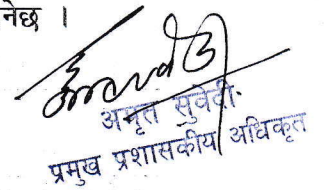 नेछ ।
अमृत सुवेदी
प्रमुख प्रशासकीय अधिकृत